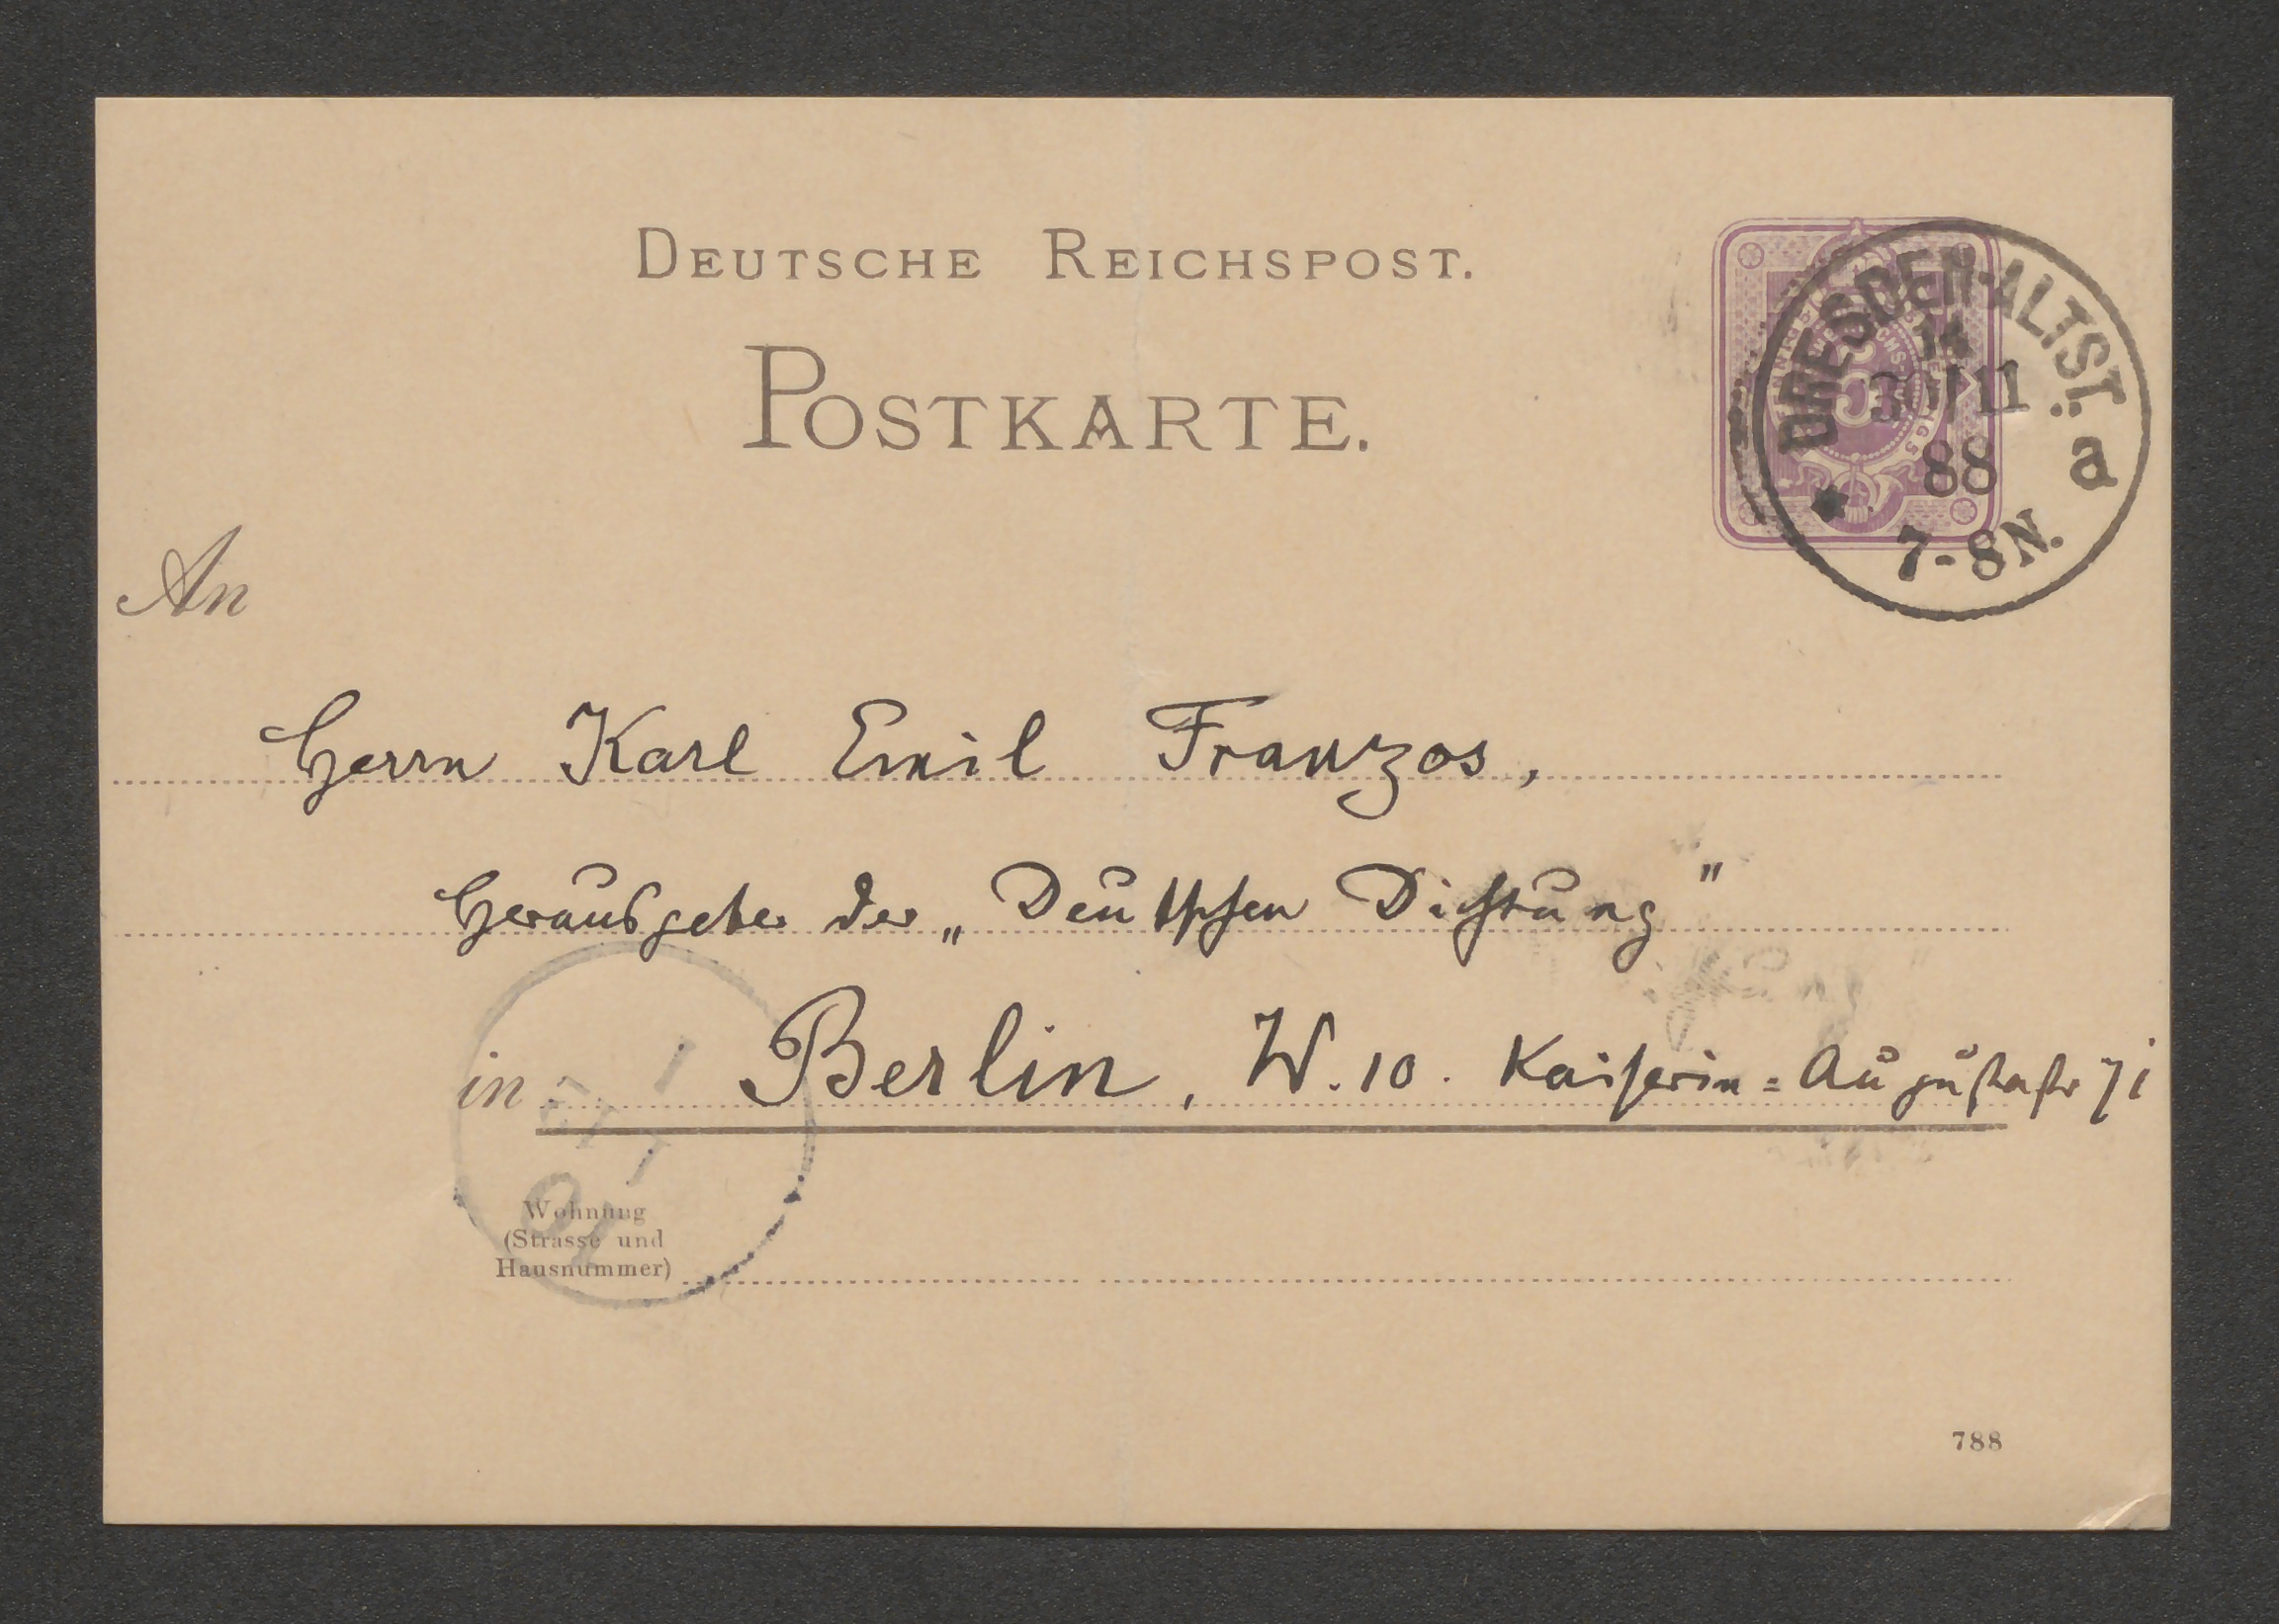 DEUTSCHE REICHSPOST.
POSTKARTE.
DRESDEN-ALTST.
30/11
88
a
7-8N.
An
Herrn Karl Emil Franzos,
Herausgeber der „Deutschen Dichtung"
in Berlin, W. 10. Kaiserin=Augustastr 71
Wohnung
(Strasse und
Hausnummer)
788